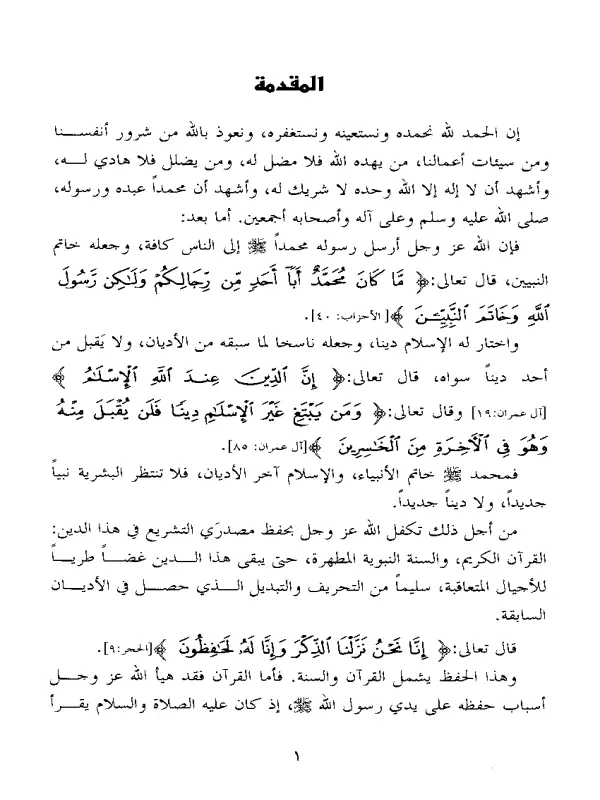 المقدمة
إن الحمد لله نحمده ونستعينه ونستغفره، ونعوذ بالله من شرور أنفسنا
ومن سيئات أعمالنا، من يهده الله فلا مضل له، ومن يضلل فلا هادي له،
وأشهد أن لا إله إلا الله وحده لا شريك له، وأشهد أن محمداً عبده ورسوله،
صلى الله عليه وسلم وعلى آله وأصحابه أجمعين. أما بعد:
فإن الله عز وجل أرسل رسوله محمداً ﷺ إلى الناس كافة، وجعله خاتم
النبيين، قال تعالى:﴿ مَّا كَانَ مُحَمَّدٌ أَبَآ أَحَدٍ مِّن رِّجَالِكُمْ وَلَٰكِن رَّسُولَ
ٱللَّهِ وَخَاتَمَ ٱلنَّبِيِّـۧنَ ﴾[الأحزاب: ٤٠].
واختار له الإسلام دينا، وجعله ناسخا لما سبقه من الأديان، ولا يَقبل من
أحد ديناً سواه، قال تعالى:﴿ إِنَّ ٱلدِّينَ عِندَ ٱللَّهِ ٱلْإِسْلَٰمُ ﴾
[آل عمران:١٩] وقال تعالى:﴿ وَمَن يَبْتَغِ غَيْرَ ٱلْإِسْلَٰمِ دِينًا فَلَن يُقْبَلَ مِنْهُ
وَهُوَ فِي ٱلْأَخِرَةِ مِنَ ٱلْخَٰسِرِينَ ﴾[آل عمران: ٨٥].
فمحمد ﷺ خاتم الأنبياء، والإسلام آخر الأديان، فلا تنتظر البشرية نبياً
جديداً، ولا ديناً جديداً.
من أجل ذلك تكفل الله عز وجل بحفظ مصدرَي التشريع في هذا الدين:
القرآن الكريم، والسنة النبوية المطهرة، حتى يبقى هذا الدين غضاً طرياً
للأجيال المتعاقبة، سليماً من التحريف والتبديل الذي حصل في الأديان
السابقة.
قال تعالى:﴿ إِنَّا نَحْنُ نَزَّلْنَا ٱلذِّكْرَ وَإِنَّا لَهُۥ لَحَٰفِظُونَ ﴾[الحجر:٩].
وهذا الحفظ يشمل القرآن والسنة. فأما القرآن فقد هيأ الله عز وجل
أسباب حفظه على يدي رسول الله ﷺ، إذ كان عليه الصلاة والسلام يقرأ
١